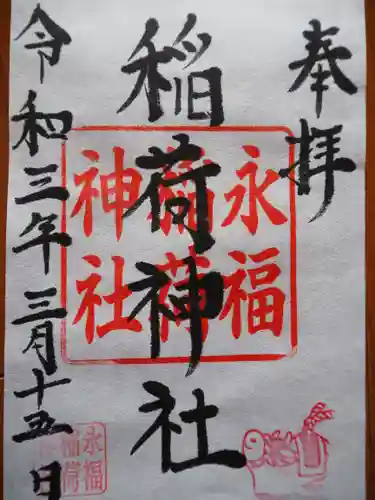 奉拝
稲荷神社
令和三年三月十五日
永福
稲荷
神社
永福
稲荷